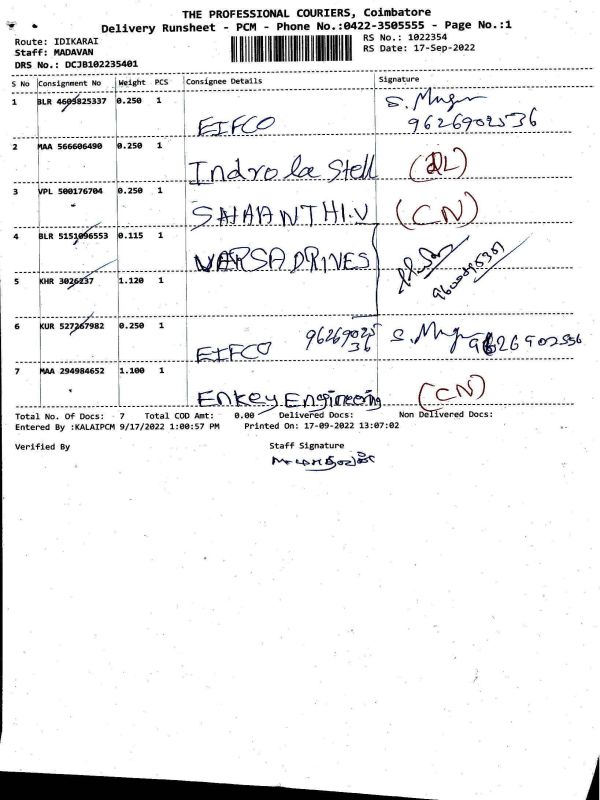 THE PROFESSIONAL COURIERS, Coimbatore
Delivery Runsheet - PCM - Phone No.:0422-3505555 - Page No.:1
Route: IDIKARAI
RS No.: 1022354
Staff: MADAVAN
RS Date: 17-Sep-2022
DRS No.: DCJB102235401
S No Consignment No Weight PCS Consignee Details Signature
1 BLR 4609825337 0.250 1
EIFCO 9626902536
2 MAA 566606490 0.250 1
Indro la Stell (DL)
3 VPL 500176704 0.250 1
SAHAANTHI.V (CN)
4 BLR 5151096553 0.115 1
VARSA DRIVES
5 KHR 3026237 1.120 1
6 KUR 527267982 0.250 1
EIFCO 96269025 36
7 MAA 294984652 1.100 1
Enkey Engineering (CN)
Total No. Of Docs: 7 Total COD Amt: 0.00 Delivered Docs: Non Delivered Docs:
Entered By :KALAIPCM 9/17/2022 1:00:57 PM Printed On: 17-09-2022 13:07:02
Verified By Staff Signature